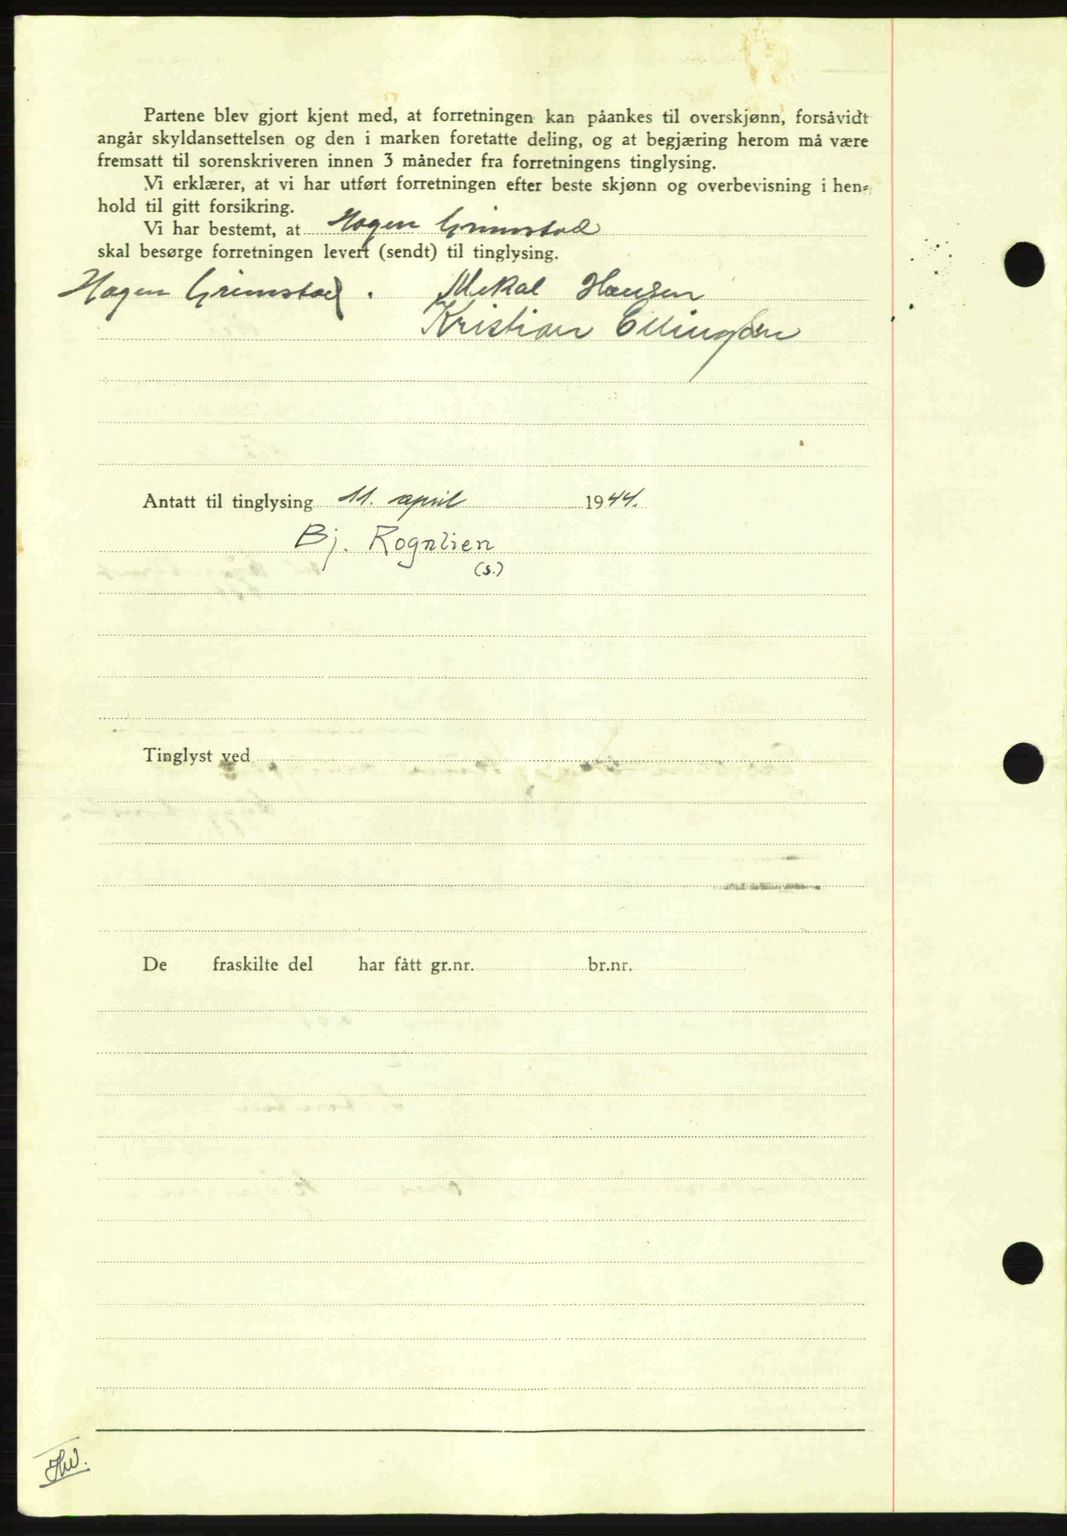 Partene blev gjort kjent med, at forretningen kan påankes til overskjønn, forsåvidt
angår skyldansettelsen og den i marken foretatte deling, og at begjæring herom må være
fremsatt til sorenskriveren innen 3 måneder fra forretningens tinglysing.
Vi erklærer, at vi har utført forretningen efter beste skjønn og overbevisning i hen-
hold til gitt forsikring.
Vi har bestemt, at Hagen Grimstad
skal besørge forretningen levert (sendt) til tinglysing.
Hagen Grimstad. Mekal Hansen
Kristian Ellingsen
Antatt til tinglysing 11. april 1944.
Bj. Rognlien
(s.)
Tinglyst ved
De fraskilte del har fått gr.nr. br.nr.